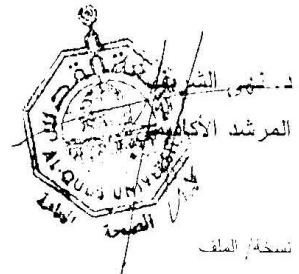 د. نهى الشريف
المرشد الأكاديمي
AL-QUDS UNIVERSITY
الصحة العامة
نسخة/ الملف